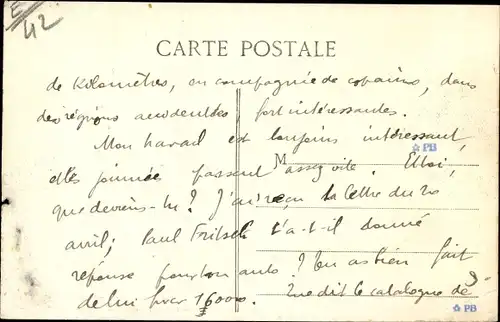 E/42
CARTE POSTALE
de Kilomètres, en compagnie de copains, dans
des régions accidentées, fort intéressantes.
Mon travail est toujours intéressant,
☆PB
M
et les journées passent assez vite. Et toi,
que deviens-tu ? J'ai reçu ta lettre du 20
avril ; Paul Fritsch t'a-t-il donné
réponse pour ton auto ? Tu as bien fait
de lui 16000. Que dit le catalogue de
☆PB